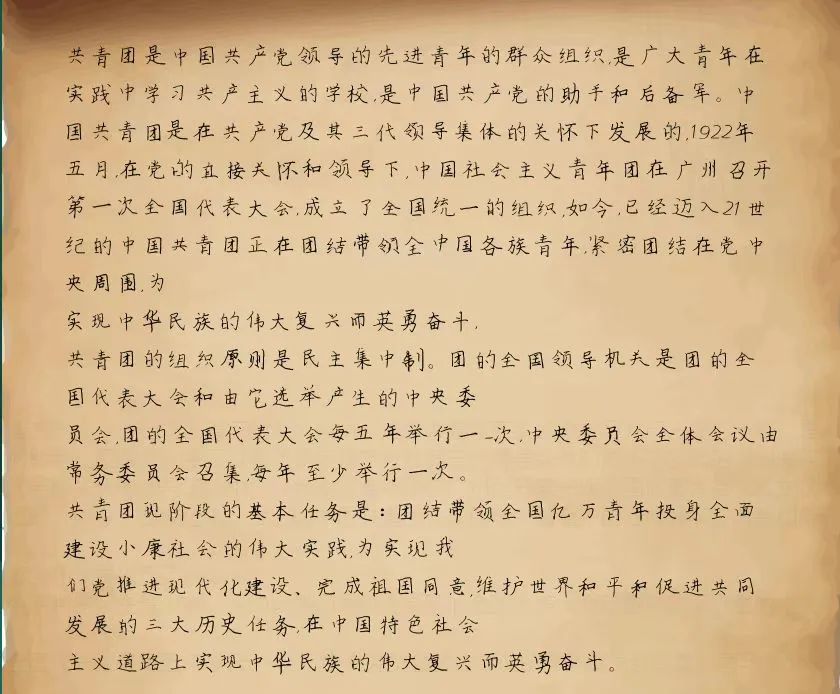 共青团是中国共产党领导的先进青年的群众组织,是广大青年在
实践中学习共产主义的学校,是中国共产党的助手和后备军。中
国共青团是在共产党及其三代领导集体的关怀下发展的,1922年
五月,在党的直接关怀和领导下,中国社会主义青年团在广州召开
第一次全国代表大会,成立了全国统一的组织,如今,已经迈入21世
纪的中国共青团正在团结带领全中国各族青年,紧密团结在党中
央周围,为
实现中华民族的伟大复兴而英勇奋斗,
共青团的组织原则是民主集中制。团的全国领导机关是团的全
国代表大会和由它选举产生的中央委
员会,团的全国代表大会每五年举行一一次,中央委员会全体会议由
常务委员会召集,每年至少举行一次。
共青团现阶段的基本任务是:团结带领全国亿万青年投身全面
建设小康社会的伟大实践,为实现我
们党推进现代化建设、完成祖国同意,维护世界和平和促进共同
发展的三大历史任务,在中国特色社会
主义道路上实现中华民族的伟大复兴而英勇奋斗。